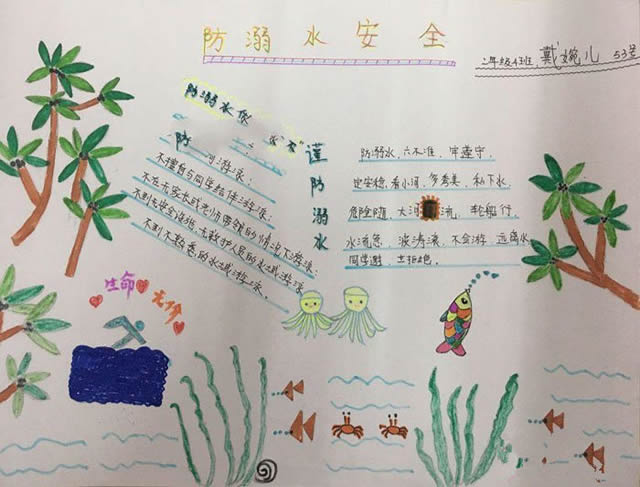 防溺水安全
二年级4班 戴婉儿 53号
防溺水
防 游泳
不擅自与同学结伴游泳;
不在无家长或老师带领的情况下游泳;
不到无安全设施、无救护人员的水域游泳
不到不熟悉的水域游泳。
谨防溺水
防溺水,六不准,牢遵守,
看小河,多孝美,私下水,
危险随,大河 流,轮船行,
水流急,波涛滚,不会游,远离水
同学邀,去拒绝。
生命
无价